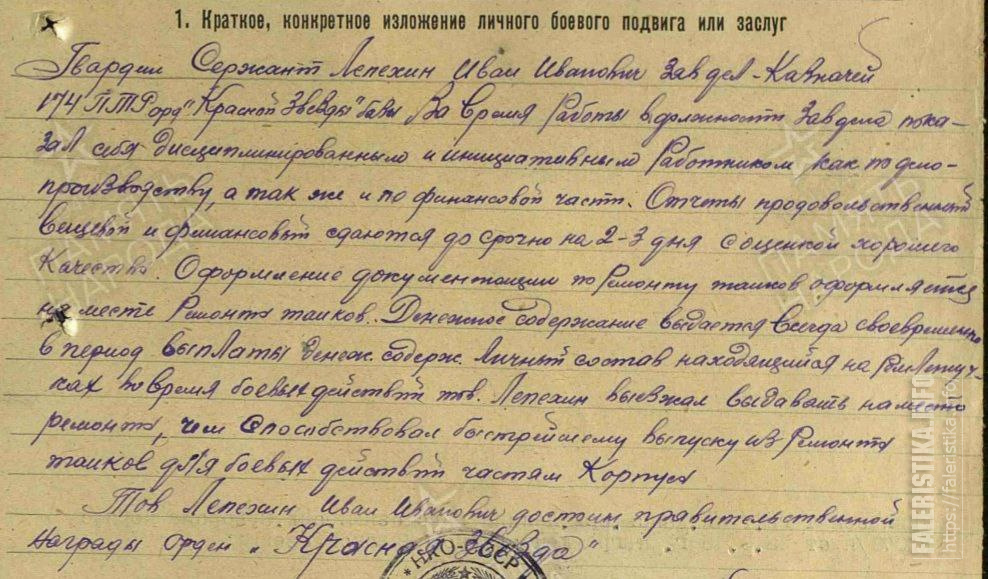 1. Краткое, конкретное изложение личного боевого подвига или заслуг
Гвардии Сержант Лепехин Иван Иванович Завдел-Казначей
174 ПТР орд "Красной Звезды" базы. За время работы в должности Завдела пока-
зал себя дисциплинированным и инициативным работником как по дело-
производству, а так же и по финансовой части. Отчеты продовольственный
вещевой и финансовый сдаются до срочно на 2-3 дня с оценкой хорошего
качества. Оформление документации по ремонту танков оформляется
на месте ремонта танков. Денежное содержание выдается всегда своевременно
в период выплаты денеж. содерж. личный состав находящийся на РемЛетуч-
ках во время боевых действий тов. Лепехин выезжал выдавать на место
ремонта, чем способствовал быстрейшему выпуску из ремонта
танков для боевых действий частям Корпуса
Тов Лепехин Иван Иванович достоин правительственной
награды орден „Красная Звезда"
НКО-СССР
ПАМЯТЬ НАРОДА
ПАМЯТЬ НАРОДА
FALERISTIKA.INFO
https://faleristika.info